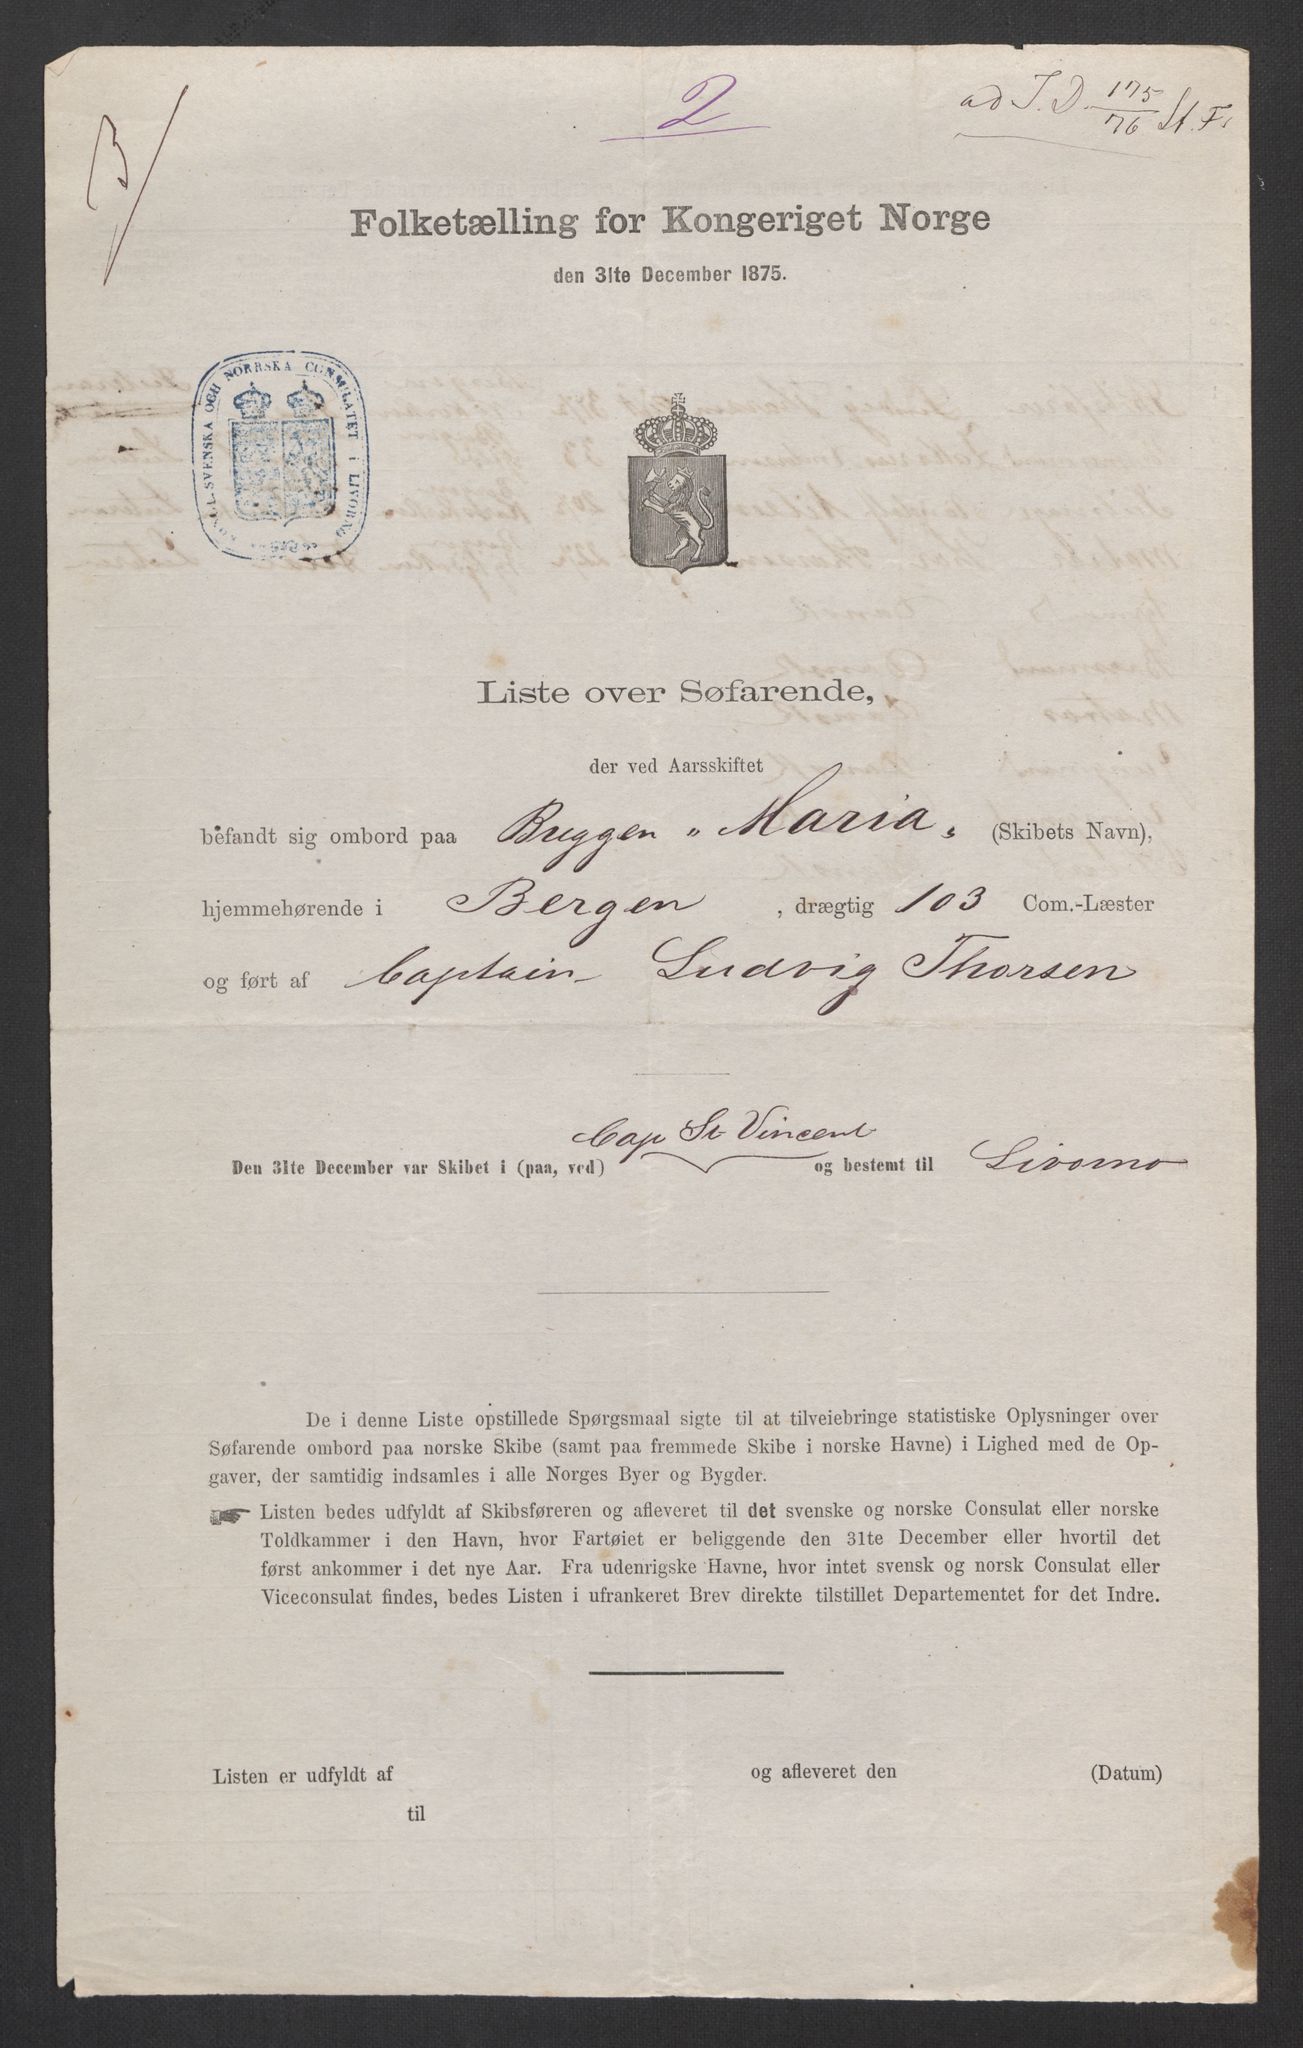 3
2
ad I.D. 175/76 St. F.
Folketælling for Kongeriget Norge
den 31te December 1875.
KONGL. SVENSKA OCH NORRSKA CONSULATET I LIVORNO
Liste over Søfarende,
der ved Aarsskiftet
befandt sig ombord paa Briggen „Maria„ (Skibets Navn),
hjemmehørende i Bergen , drægtig 103 Com.-Læster
og ført af Captain Ludvig Thorsen
Den 31te December var Skibet i (paa, ved) Cap St Vincent og bestemt til Livorno
De i denne Liste opstillede Spørgsmaal sigte til at tilveiebringe statistiske Oplysninger over
Søfarende ombord paa norske Skibe (samt paa fremmede Skibe i norske Havne) i Lighed med de Op-
gaver, der samtidig indsamles i alle Norges Byer og Bygder.
☛ Listen bedes udfyldt af Skibsføreren og afleveret til det svenske og norske Consulat eller norske
Toldkammer i den Havn, hvor Fartøiet er beliggende den 31te December eller hvortil det
først ankommer i det nye Aar. Fra udenrigske Havne, hvor intet svensk og norsk Consulat eller
Viceconsulat findes, bedes Listen i ufrankeret Brev direkte tilstillet Departementet for det Indre.
Listen er udfyldt af og afleveret den (Datum)
til